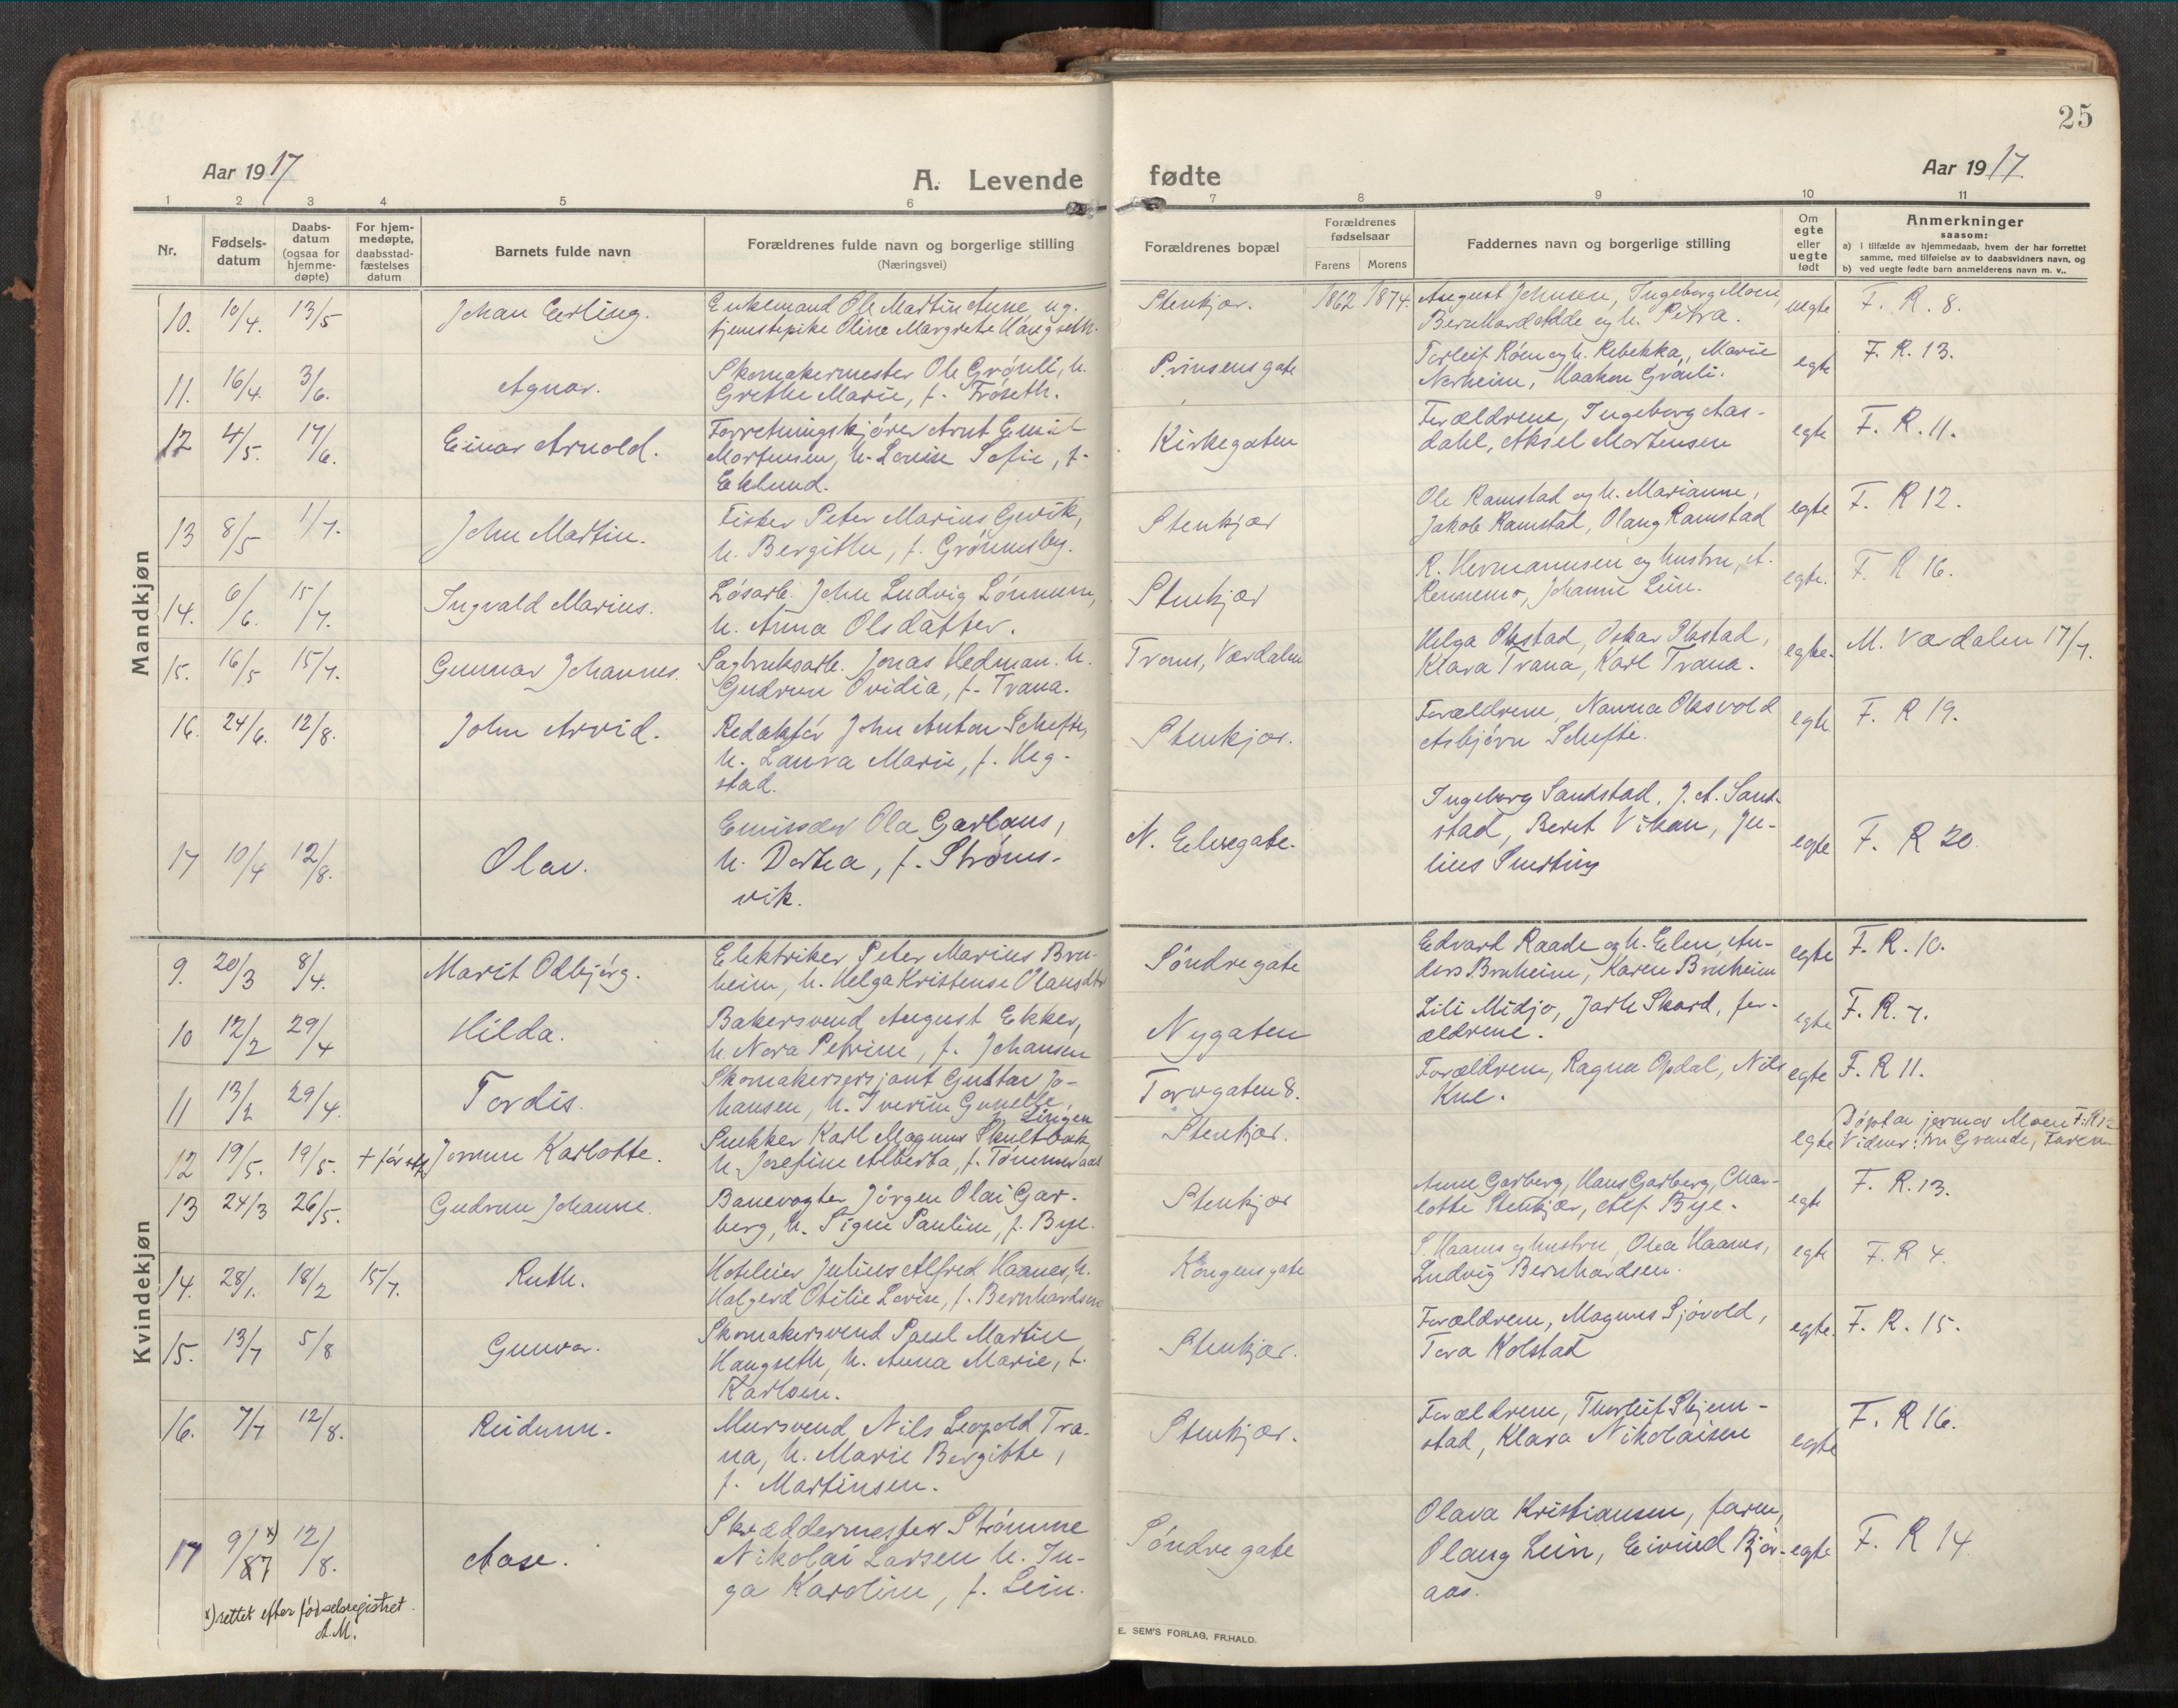 25
Aar 1917
A. Levende fødte
Aar 1917.
1 2 3 4 5 6 7 8 9 10 11
Nr.
Fødsels-
datum
Daabs-
datum
(ogsaa for
hjemme-
døpte)
For hjem-
medøpte,
daabsstad-
fæstelses
datum
Barnets fulde navn
Forældrenes fulde navn og borgerlige stilling
(Næringsvei)
Forældrenes bopæl
Forældrenes
fødselsaar
Farens Morens
Faddernes navn og borgerlige stilling
Om
egte
eller
uegte
født
Anmerkninger
saasom:
a) i tilfælde av hjemmedaab, hvem der har forrettet
samme, med tilføielse av to daabsvidners navn, og
b) ved uegte fødte barn anmelderens navn m. v..
Mandkjøn
10. 10/4. 13/5 Johan Erling.
Enkemand Ole Martin Aune, ug.
tjenestepike Oline Margrete Haugseth.
Stenkjær. 1862 1874.
August Johnsen, Ingeborg Moen,
Bernhard Adde og h. Petra.
uegte F. R. 8.
11. 16/4. 3/6. Agnar.
Skomakermester Ole Grønli, h.
Grethe Marie, f. Frøseth.
Prinsensgate
Torleif Røen og h. Rebekka, Marie
Norheim, Haakon Grønli.
egte F. R. 13.
12 4/5. 17/6. Einar Arnold.
Forretningskjører Arnt Emil
Mortensen, h. Louise Sofie, f.
Eklund.
Kirkegaten
Forældrene, Ingeborg Aas-
dahl, Aksel Mortensen
egte F. R. 11.
13 8/5 1/7. John Martin.
Fisker Peter Marius Gjevik,
h. Bergithe, f. Grønnesby.
Stenkjær
Ole Ramstad og h. Marianne,
Jakob Ramstad, Olaug Ramstad
egte F. R 12.
14. 6/6. 15/7. Ingvald Marius.
Løsarb. John Ludvig Lønnum,
h. Anna Olsdatter.
Stenkjær
R. Hermannsen og hustru, A.
Rennemo, Johanne Lein.
egte. F. R 16.
15. 16/5 15/7. Gunnar Johannes.
Sagbruksarb. Jonas Hedman. h.
Gudrun Ovidia, f. Trana.
Trones, Værdalen
Helga Okstad, Oskar Okstad,
Klara Trana, Karl Trana.
egte. M. Værdalen 17/7.
16. 24/6. 12/8. John Arvid.
Redaktør John Anton Schefte,
h. Laura Marie, f. Heg-
stad.
Stenkjær.
Forældrene, Nanna Oksvold
Asbjørn Schefte.
egte F. R 19.
17 10/4 12/8. Olav.
Emissær Ola Garlaus,
h. Dortea, f. Strøms-
vik.
N. Elvegate.
Ingeborg Sandstad, J. A. Sand-
stad, Beret Vikan, Ju-
lius Smerting
egte F. R 20.
Kvindekjøn
9. 20/3 8/4. Marit Odbjørg.
Elektriker Peter Marius Bru-
heim, h. Helga Kristense Olausdtr
Søndregate
Edvard Raade og h. Elen, An-
ders Bruheim, Karen Bruheim
egte F. R. 10.
10 12/2 29/4 Hilda.
Bakersvend August Ekker,
h. Nora Petrine, f. Johansen
Nygaten
Lili Midjo, Jarle Skard, for-
ældrene.
egte F. R. 7.
11 13/2 29/4. Tordis.
Skomakersersjant Gustav Jo-
hansen, h. Iverine Gunelle,
Lingen
Torvgaten 8.
Forældrene, Ragna Opdal, Nils
Kne.
egte F. R 11.
12 19/5. 19/5. Jorunn Karlotte.
Snekker Karl Magnus Skultbak
h. Josefine Alberta, f. Tømmeraas
Stenkjær.
egte Døpt av jormor Moen F. R 12
Vidner: fru Grande, Faren
13 24/3 26/5. Gudrun Johanne.
Banevogter Jørgen Olai Gar-
berg, h. Signe Pauline, f. Bye.
Stenkjær
Anne Garberg, Hans Garberg, Char-
lotte Stenkjær, Alf Bye.
egte F. R. 13.
14. 28/1. 18/2 15/7. Ruth.
Hoteleier Julius Alfred Haanes, h.
Halgerd Otilie Lovise, f. Bernhardsen
Kongensgate
S. Haanes og hustru, Olea Haanes,
Ludvig Bernhardsen.
egte F. R 4.
15. 13/7 5/8 Gunvor.
Skomakersvend Paul Martin
Haugseth, h. Anna Marie, f.
Karlsen.
Stenkjær.
Forældrene, Magnus Sjøvold,
Tora Kolstad
egte. F. R. 15.
16. 7/7 12/8. Reidunn.
Mursvend Nils Leopold Tra-
na, h. Marie Bergitte,
f. Martinsen.
Stenkjær.
Forældrene, Thorleif Skjem-
stad, Klara Nikolaisen
egte F. R 16.
17 9/87 x) 12/8. Aase.
Skræddermester Strømme
Nikolai Larsen h. In-
ga Karoline, f. Lein.
Søndregate
Olava Kristiansen, faren,
Olaug Lein, Eivind Bjør-
aas.
egte F. R 14.
x) rettet efter fødselsregistret.
A.M.
E. SEM'S FORLAG, FR.HALD.